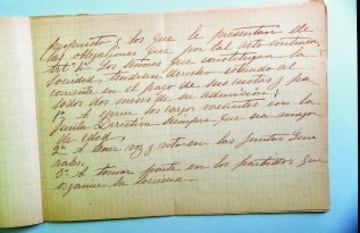 propuesto y los que le presentan de
las obligaciones que por tal acto contraen.
Art. 4º Los señores que constituyen la
Sociedad, tendrán derecho estando al
corriente en el pago de sus cuotas y pa
sados dos meses de su admisión:
1º A ejercer los cargos vacantes con la
Junta Directiva siempre que sea mayor
de edad,
2º A tener voz y voto en las Juntas Gene
rales.
3º A tomar parte en los partidos que
organice la sociedad.